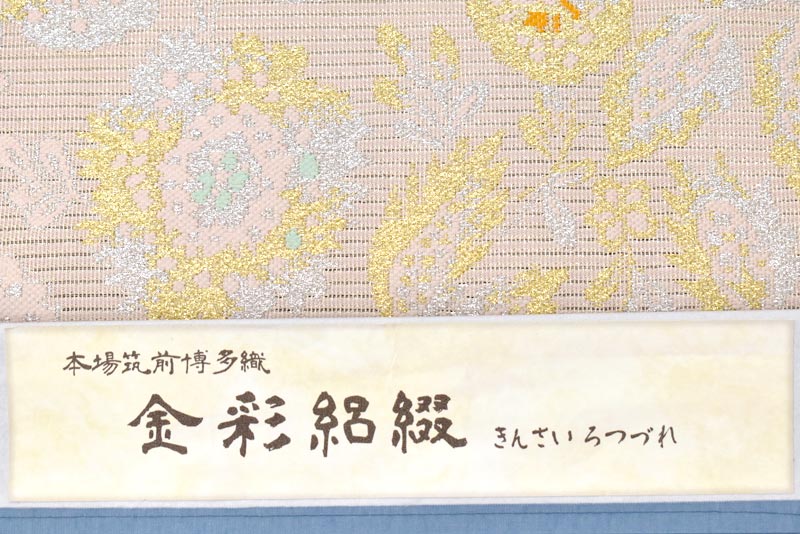 本場筑前博多織
金彩絽綴 きんさいろつづれ